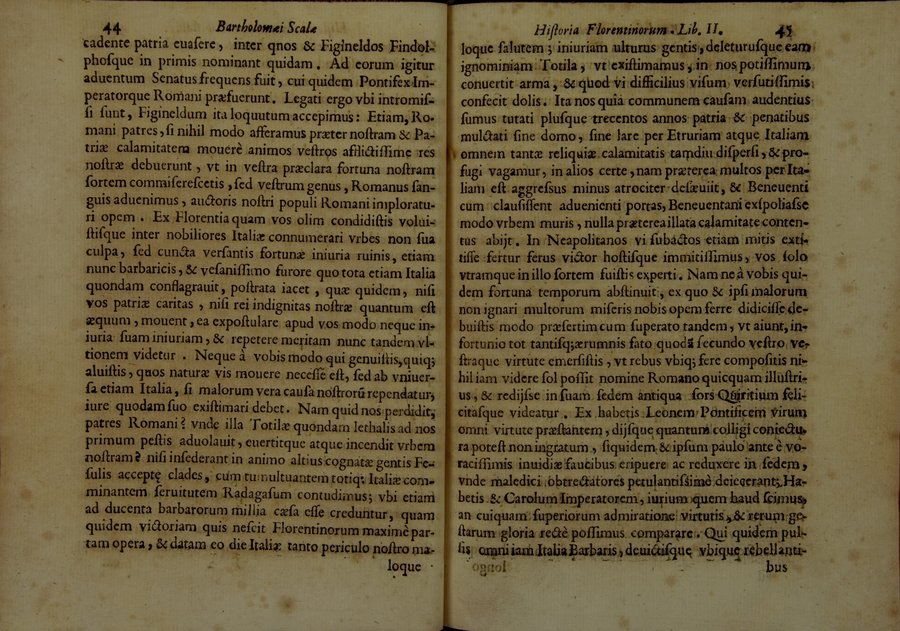 44 Bartholomæi Scalæ
cadente patria euasere, inter qnos & Figineldos Findol-
phosque in primis nominant quidam. Ad eorum igitur
aduentum Senatus frequens fuit, cui quidem Pontifex Im-
peratorque Romani præfuerunt. Legati ergo vbi intromis-
si sunt, Figineldum ita loquutum accepimus: Etiam, Ro-
mani patres, si nihil modo afferamus præter nostram & Pa-
triæ calamitatem mouerè animos vestros afflictissime res
nostræ debuerunt, vt in vestra præclara fortuna nostram
sortem commiserescetis, sed vestrum genus, Romanus san-
guis aduenimus, auctoris nostri populi Romani imploratu-
ri opem. Ex Florentia quam vos olim condidistis volui-
stisque inter nobiliores Italiæ connumerari vrbes non sua
culpa, sed cuncta versantis fortunæ iniuria ruinis, etiam
nunc barbaricis, & vesanissimo furore quo tota etiam Italia
quondam conflagrauit, postrata iacet, quæ quidem, nisi
vos patriæ caritas, nisi rei indignitas nostræ quantum est
æquum, mouent, ea expostulare apud vos modo neque in-
iuria suam iniuriam, & repetere meritam nunc tandem vl-
tionem videtur. Neque à vobis modo qui genuistis, quiq;
aluistis, quos naturæ vis mouere necesse est, sed ab vniuer-
sa etiam Italia, si malorum vera causa nostrorũ rependatur,
iure quodam suo existimari debet. Nam quid nos perdidit,
patres Romani? vnde illa Totilæ quondam lethalis ad nos
primum pestis aduolauit, euertitque atque incendit vrbem
nostram? nisi insederant in animo altius cognatæ gentis Fe-
sulis acceptę clades, cum tumultuantem totiq; Italiæ com-
minantem seruitutem Radagasum contudimus; vbi etiam
ad ducenta barbarorum millia cæsa esse creduntur, quam
quidem victoriam quis nescit Florentinorum maximè par-
tam opera, & datam eo die Italiæ tanto periculo nostro ma-
loque
Historia Florentinorum. Lib. II. 45
loque salutem; iniuriam vlturus gentis, deleturusque eam
ignominiam Totila, vt existimamus, in nos potissimum
conuertit arma, & quod vi difficilius visum versutissimis
confecit dolis. Ita nos quia communem causam audentius
sumus tutati plusque trecentos annos patria & penatibus
mulctati sine domo, sine lare per Etruriam atque Italiam
omnem tantæ reliquiæ calamitatis tamdiu dispersi, & pro-
fugi vagamur, in alios certe, nam præterea multos per Ita-
liam est aggressus minus atrociter desæuiit, & Beneuenti
cum clausissent aduenienti portas, Beneuentani expoliasse
modo vrbem muris, nulla præterea illata calamitate conten-
tus abijt. In Neapolitanos vi subactos etiam mitis exti-
tisse fertur ferus victor hostisque immitissimus, vos solo
vtramque in illo sortem fuistis experti. Nam ne à vobis qui-
dem fortuna temporum abstinuit, ex quo & ipsi malorum
non ignari multorum miseris nobis opem ferre didicisse de-
buistis modo præsertim cum superato tandem, vt aiunt, in-
fortunio tot tantisq; ærumnis fato quodã secundo vestro ve-
straque virtute emersistis, vt rebus vbiq; fere compositis ni-
hil iam videre sol possit nomine Romano quicquam illustri-
us, & redijsse in suam sedem antiqua sors Quiritium feli-
citasque videatur. Ex habetis Leonem Pontificem virum
omni virtute præstantem, dijsque quantum colligi coniectu-
ra potest non ingratum, siquidem & ipsum paulo ante è vo-
racissimis inuidiæ faucibus eripuere ac reduxere in sedem,
vnde maledici obtrectatores petulantissimè deiecerant; Ha-
betis & Carolum Imperatorem, iurium quem haud scimus,
an cuiquam superiorum admiratione virtutis, & rerum ge-
starum gloria rectè possimus comparare. Qui quidem pul-
sis omni iam Italia Barbaris, deuictisque vbique rebellanti-
bus